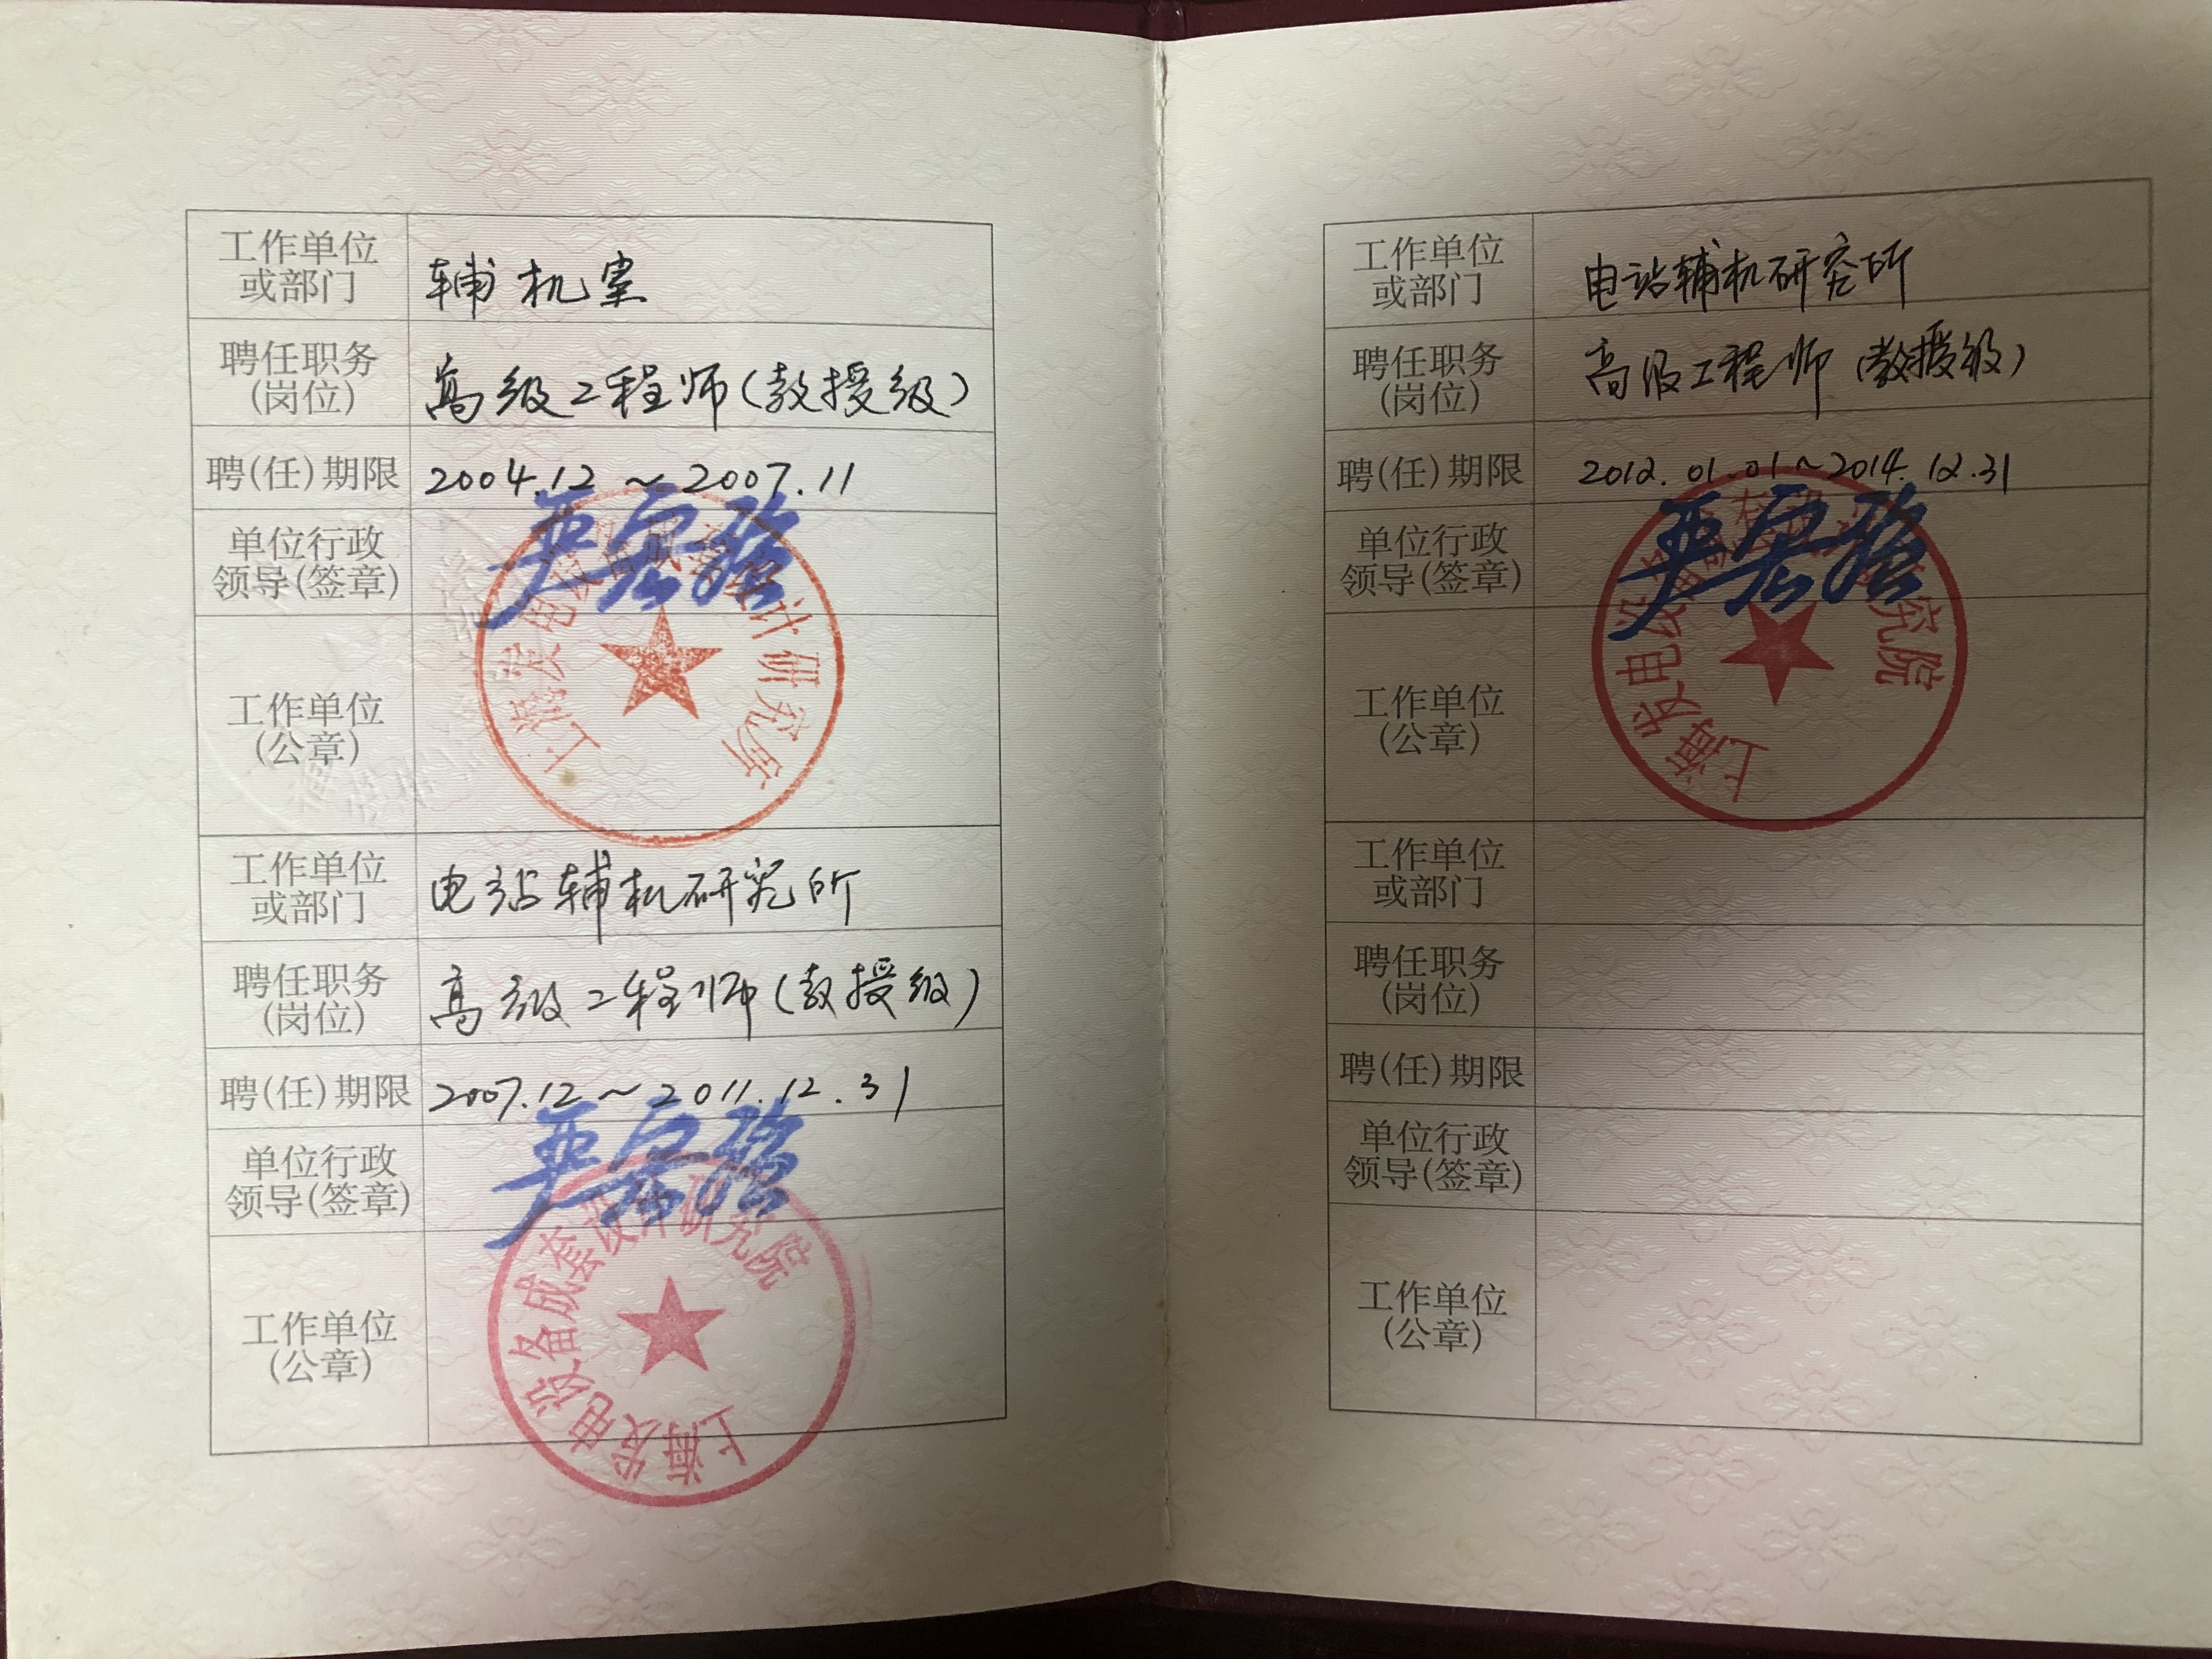 工作单位
或部门
辅机室
聘任职务
(岗位)
高级工程师(教授级)
聘(任)期限
2004.12～2007.11
单位行政
领导(签章)
严宏强
工作单位
(公章)
上海发电设备成套设计研究院
工作单位
或部门
电站辅机研究所
聘任职务
(岗位)
高级工程师(教授级)
聘(任)期限
2007.12～2011.12.31
单位行政
领导(签章)
严宏强
工作单位
(公章)
上海发电设备成套设计研究院
工作单位
或部门
电站辅机研究所
聘任职务
(岗位)
高级工程师(教授级)
聘(任)期限
2012.01.01～2014.12.31
单位行政
领导(签章)
严宏强
工作单位
(公章)
上海发电设备成套设计研究院
工作单位
或部门
聘任职务
(岗位)
聘(任)期限
单位行政
领导(签章)
工作单位
(公章)